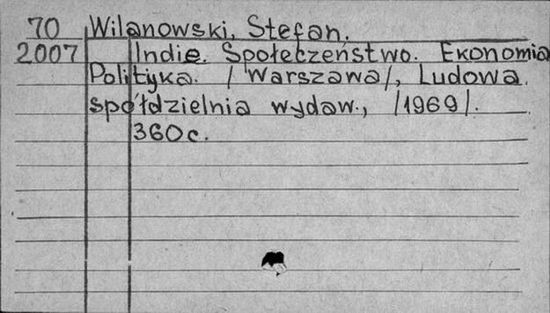 70 Wilanowski, Stefan.
2007 Indie. Społeczeństwo. Ekonomia
Polityka. /Warszawa/, Ludowa
spółdzielnia wydaw., /1969/.
360c.